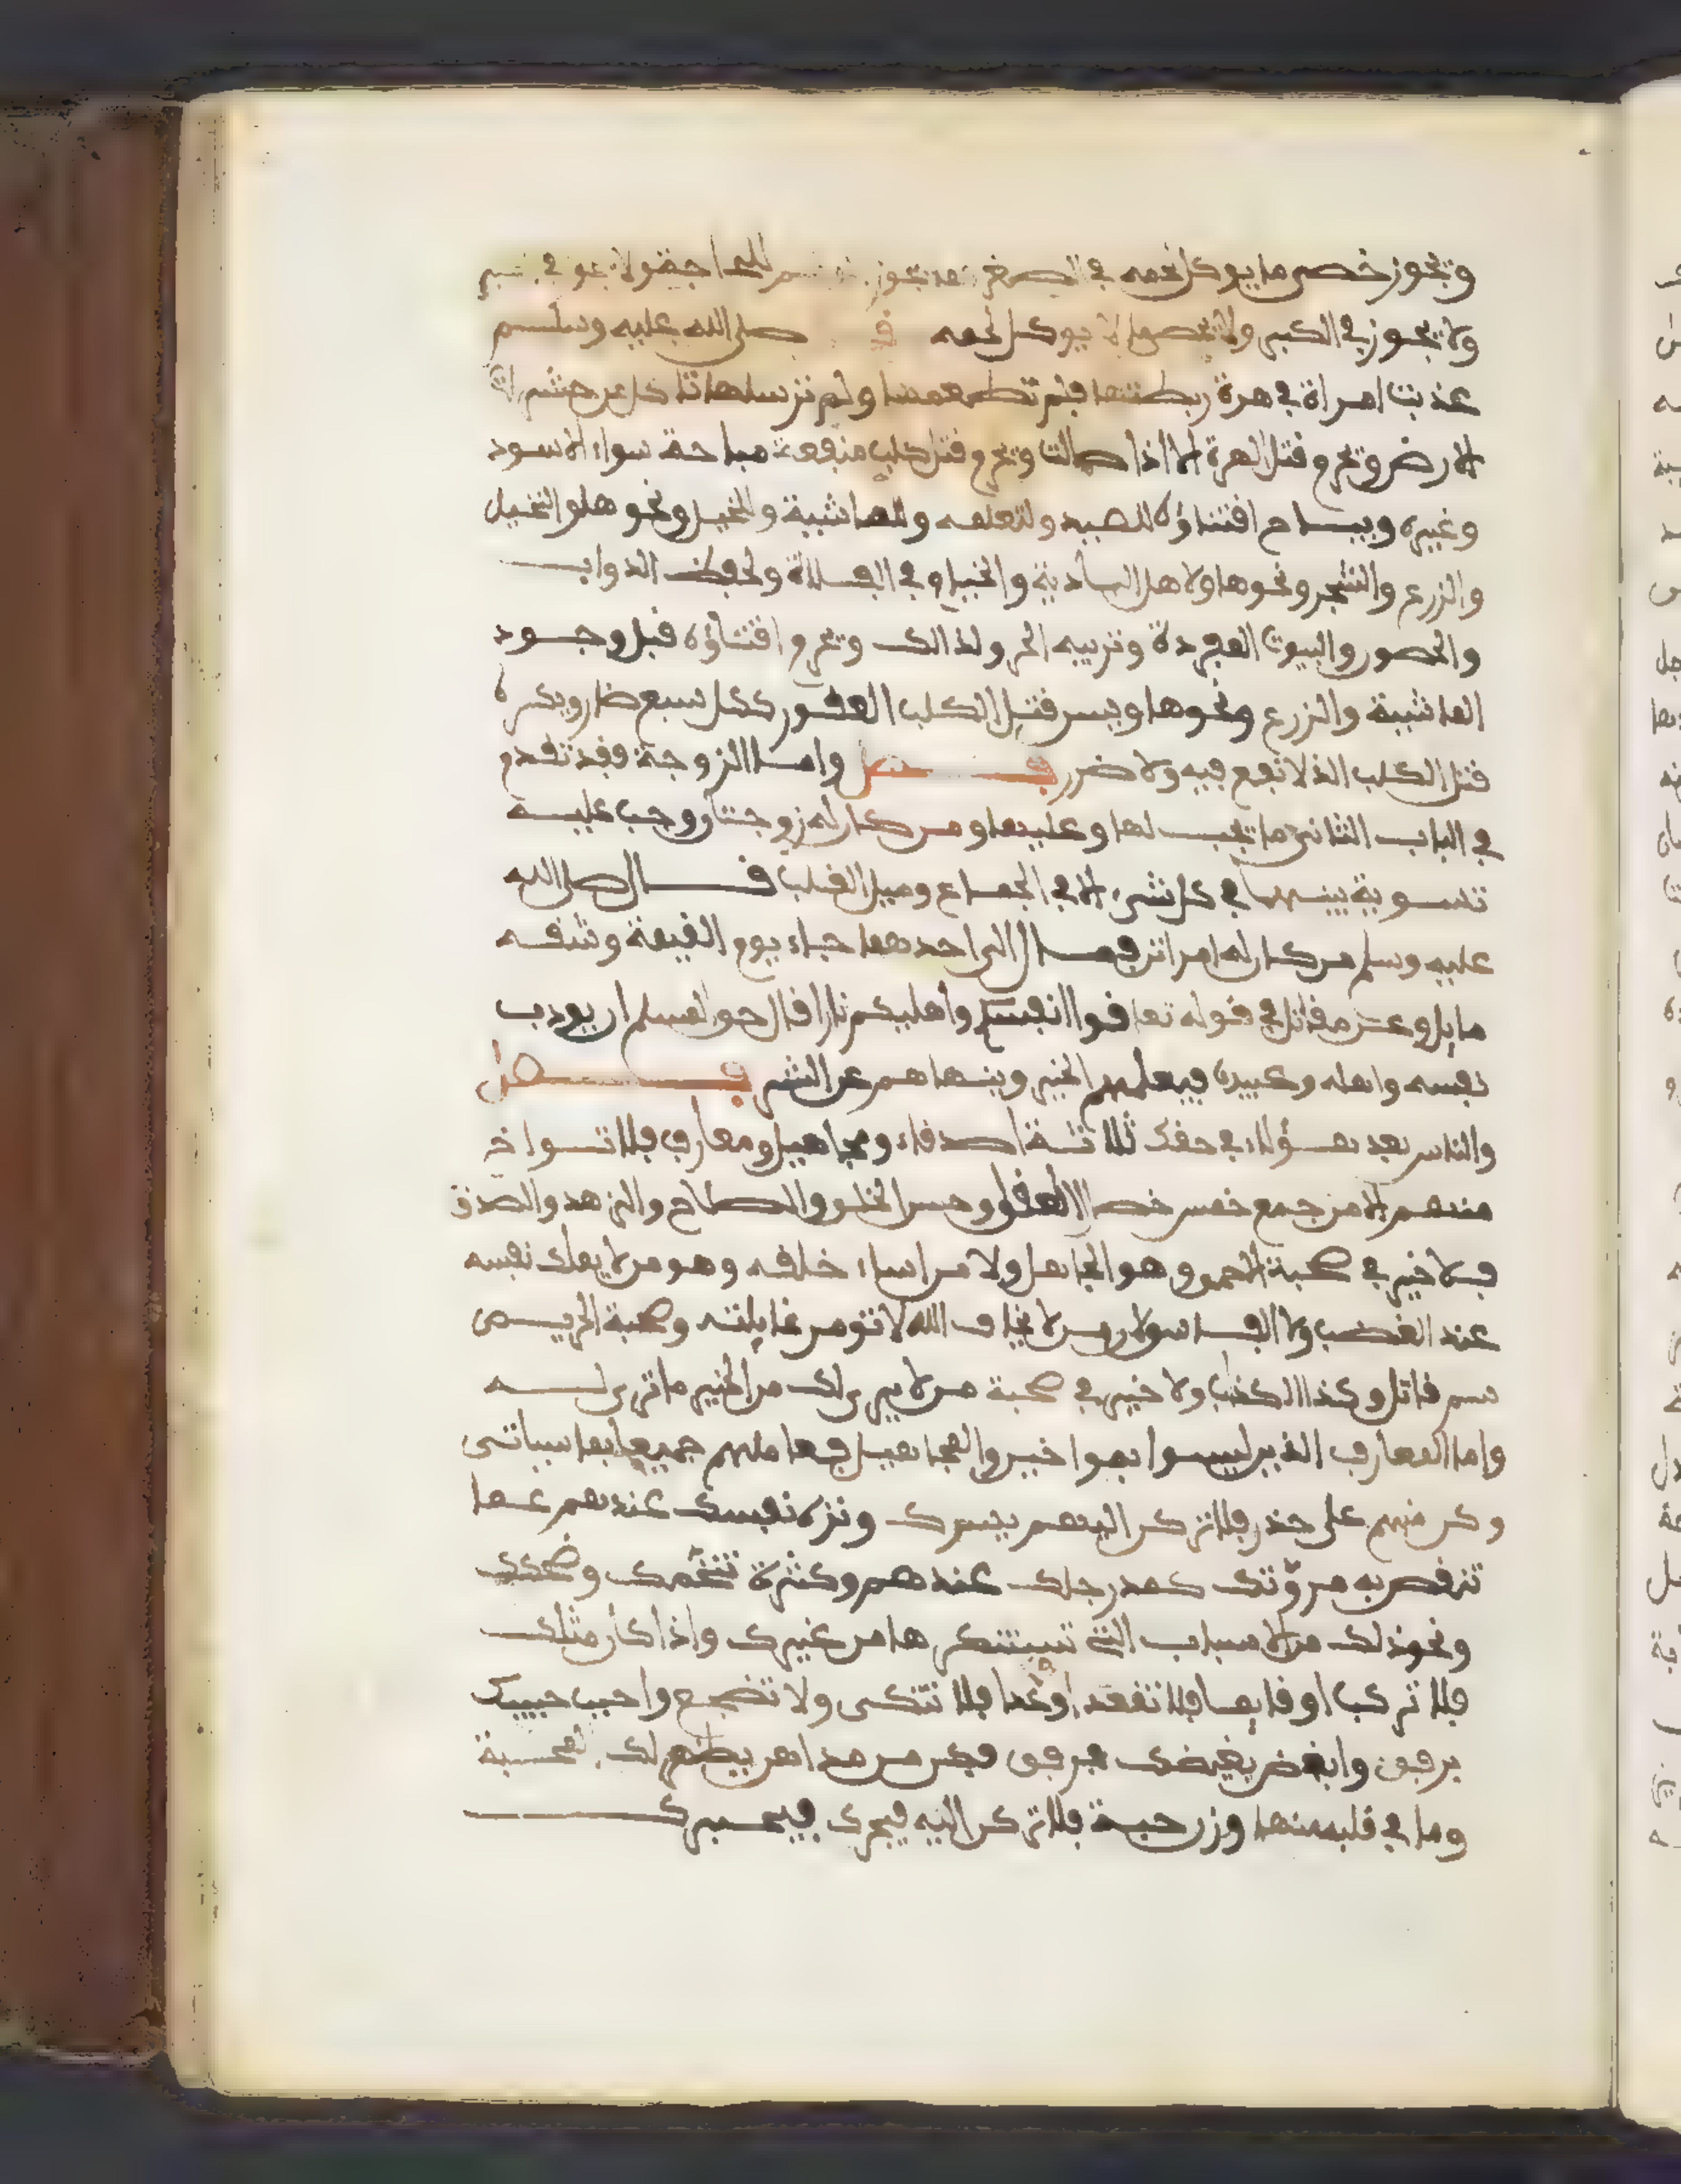 ويجوز خصي ما يوكل لحمه في الصغر
ولا يجوز في الكبر ولا يخصي ما لا يوكل لحمه صلى الله عليه وسلم
عذبت امراة في هرة ربطتها فلم تطعمها ولم ترسلها تاكل من خشاش
الارض ويحرم قتل الهرة الا اذا صالت ويحرم قتل كلب منفعة مباحة سواء الاسود
وغيره ويباح اقتناؤه للصيد ولتعلمه وللماشية والخيل ونحوها والنخيل
والزرع والشجر ونحوها ولاهل البادية والخيام في الفلاة ولحفظ الدواب
والحصور والبيوت المفردة وتربيه الجرو لذالك ويحرم اقتناؤه قبل وجود
الماشية والزرع ونحوها ويسن قتل الكلب العقور ككل سبع ضار ويكره
قتل الكلب الذ لا نفع فيه ولا ضرر فصل واما الزوجة فقد تقدم
في الباب الثاني ما يجب لها وعليها ومن كان له زوجتان وجب عليه
تسوية بينهما في كل شيء الا في الجماع وميل القلب قال صلى الله
عليه وسلم من كان له امراتن فمال الى احدهما جاء يوم القيمة وشقه
مايل وعن مقاتل في قوله تعا قوا انفسكم واهليكم نارا قال حق المسلم ان يودب
نفسه واهله وعبيده فيعلمهم الخير وينهاهم عن الشر فصل
والناس بعد هؤلاء في حقك ثلاثة اصدقاء ومجاهيل ومعارف فلا تسواخ
منهم الا من جمع خمس خصال العقل وحسن الخلق والصلاح والزهد والصدق
فلا خير في صحبة الاحمق وهو الجاهل ولا من اساء خلقه وهو من لا يملك نفسه
عند الغضب ولا الفاسق لان من لا يخاف الله لا تومن غايلته وصحبة الحريص
سم قاتل وكذا الكذاب ولا خير في صحبة من لا يرى لك من الخير ما ترى له
واما المعارف الذين ليسوا بمواخين والمجاهيل فعاملهم جميعا بما سياتي
وكن منهم على حذر فلا تركن اليهم بسرك ونزه نفسك عندهم عما
تنقص به مروتك كمد رجلك عندهم وكثرة تنخمك وضحكك
ونحو ذلك من الاسباب التي تستنكرها من غيرك واذا كان مثلك
فلا تركب او قايما فلا تقعد او قاعدا فلا تتكي ولا تضجع واحبب حبيبك
برفق وابغض بغيضك برفق فكن من مداهن يظهر لك المحبة
وما في قلبه منها وزن حبة فلا تركن اليه فيجرك فيحيرك